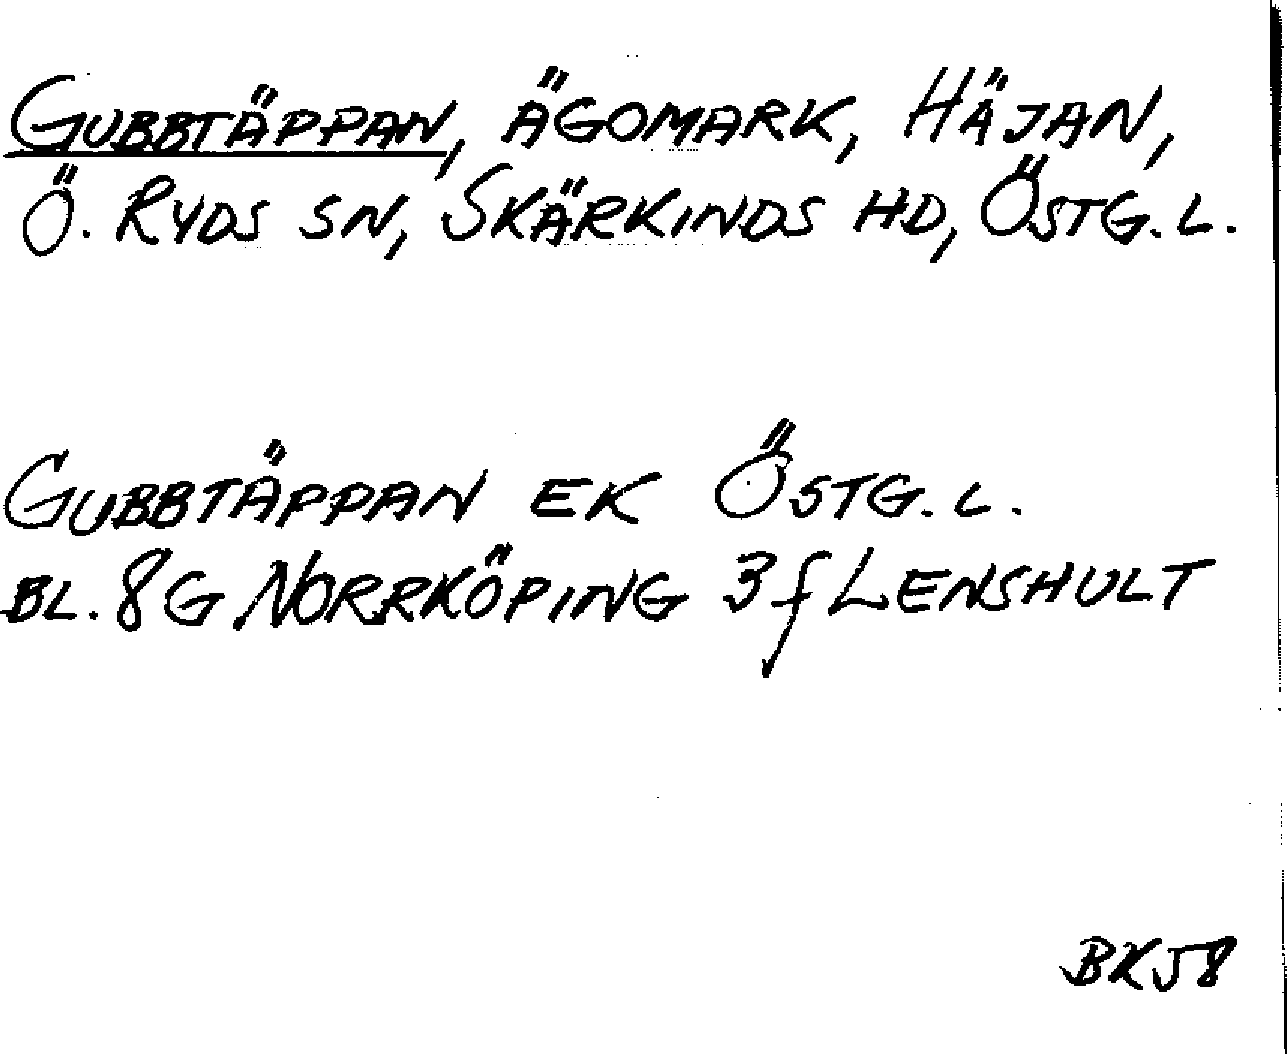 GUBBTÄPPAN, ÄGOMARK, HÄJAN,
Ö. RYDS SN, SKÄRKINDS HD, ÖSTG. L.
GUBBTÄPPAN EK ÖSTG. L.
BL. 8G NORRKÖPING 3f LENSHULT
BKJ8